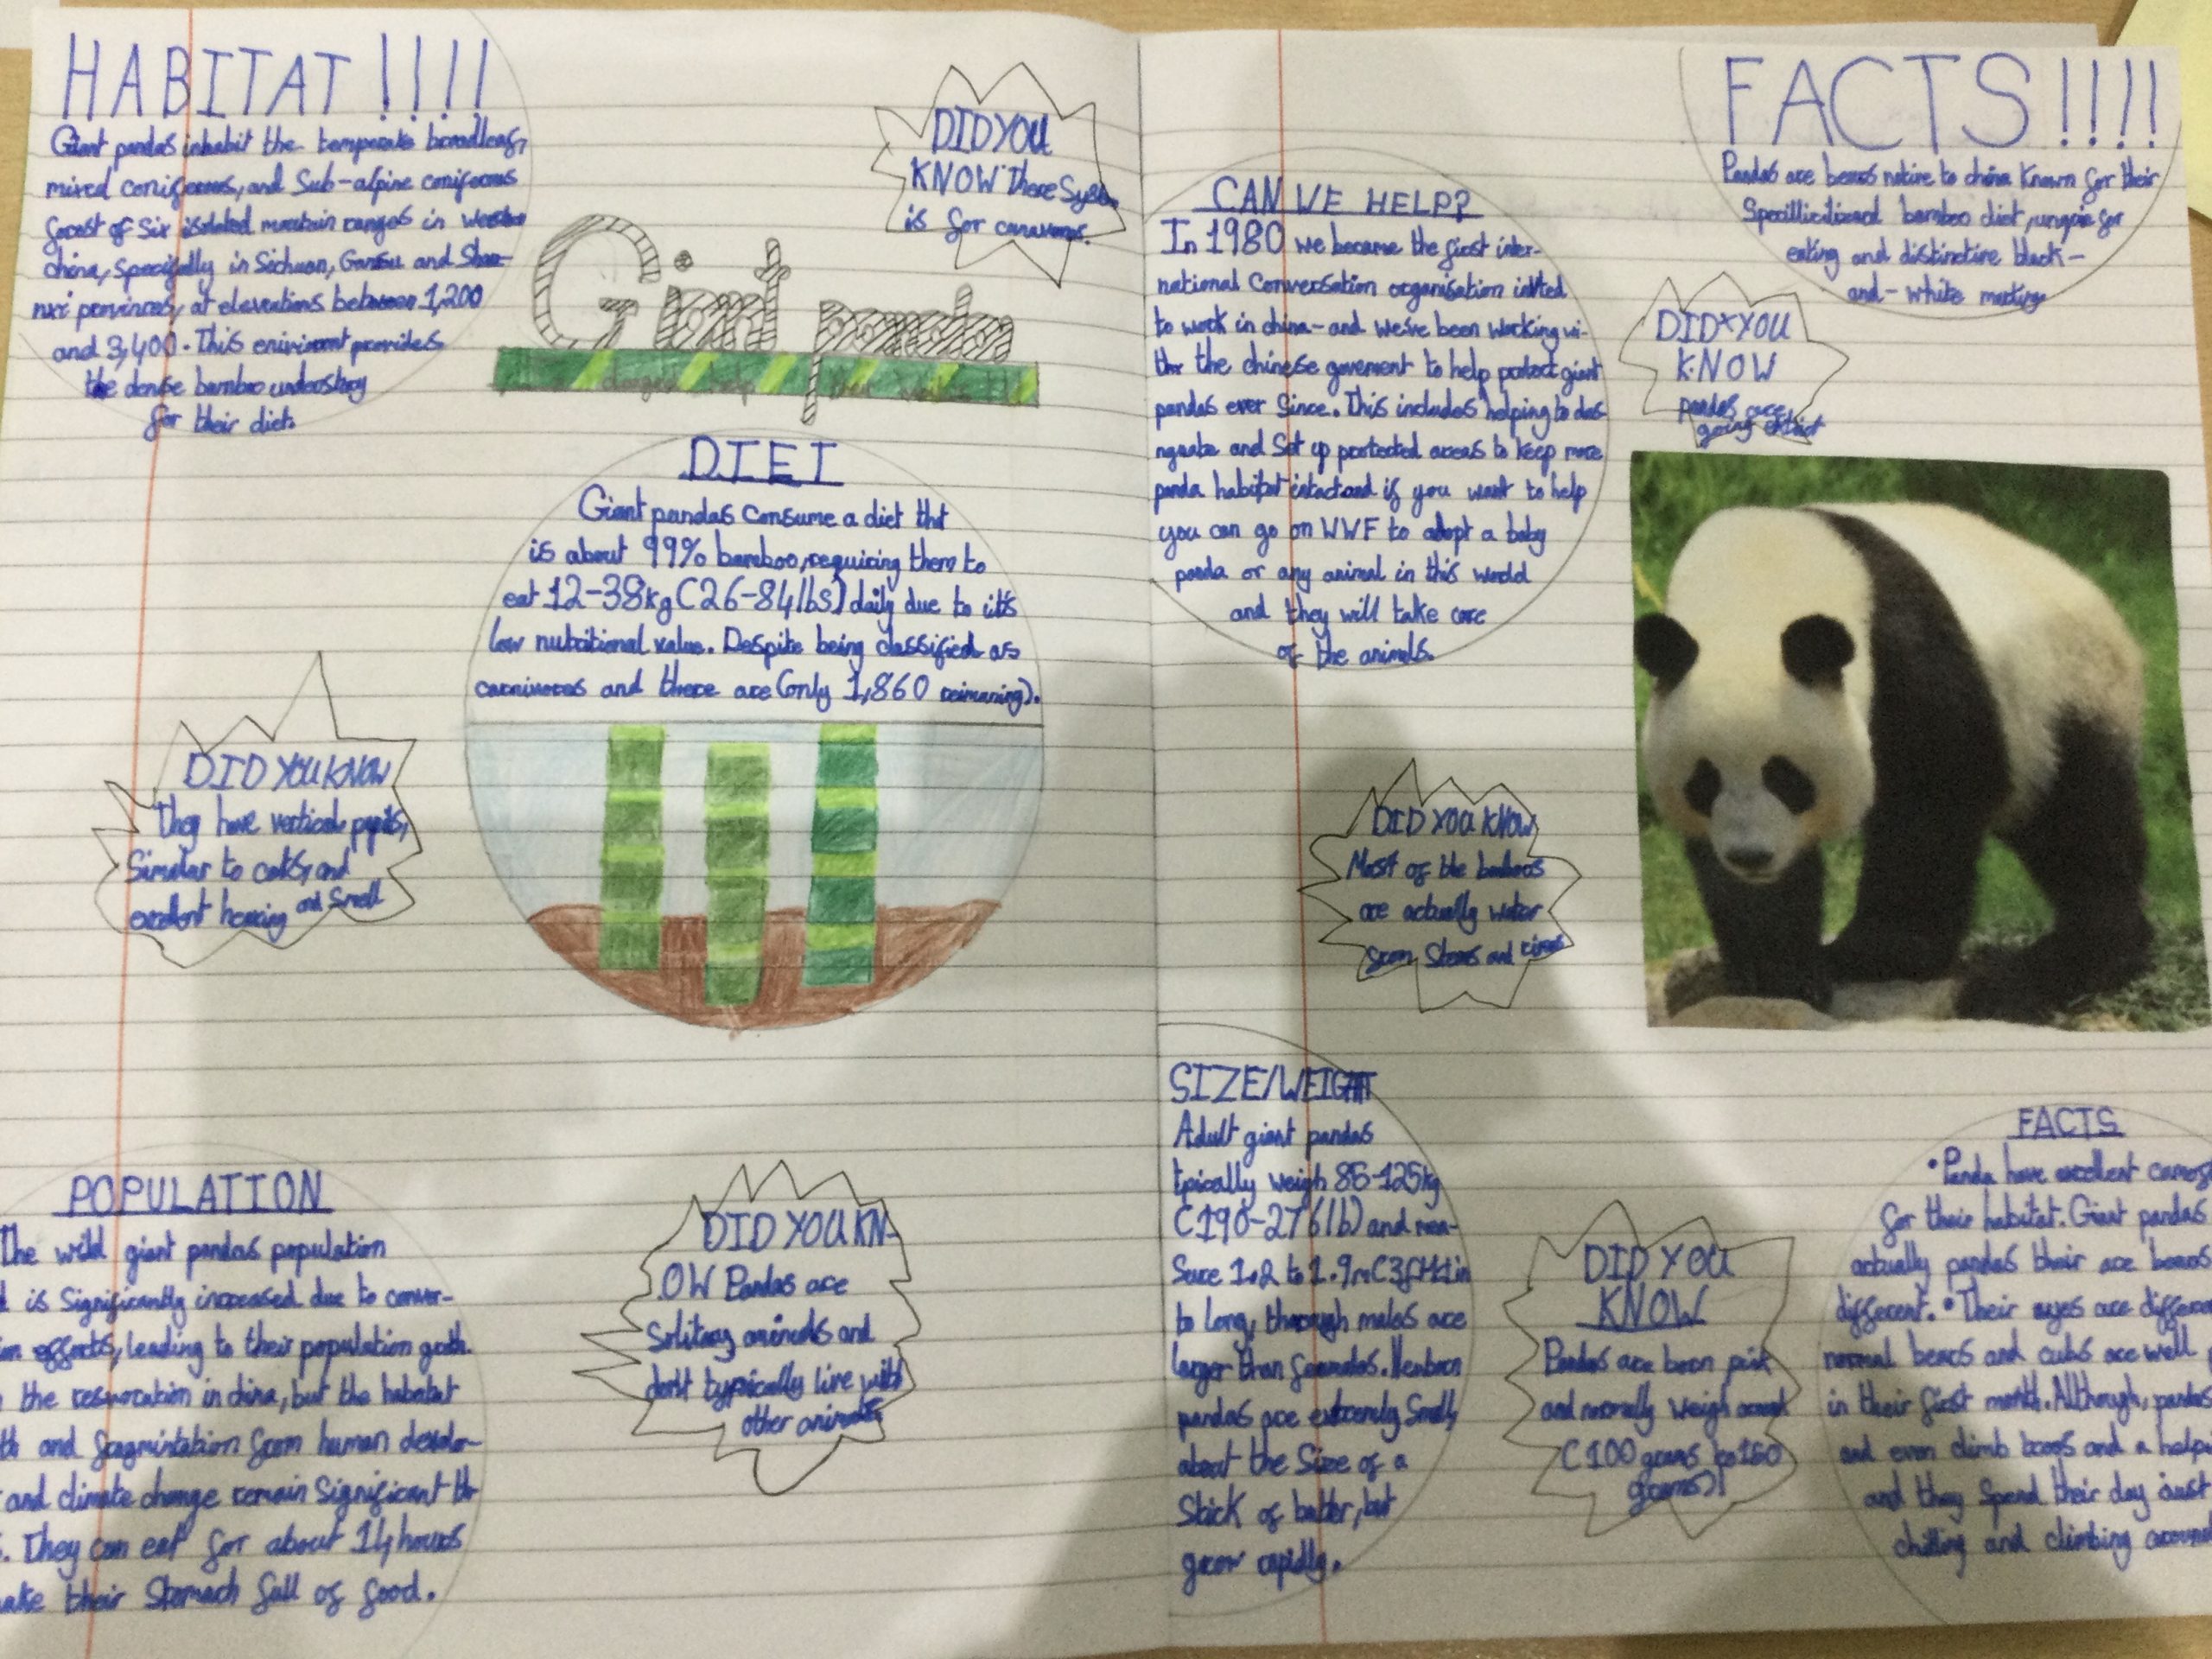 HABITAT!!!!
Giant pandas inhabit the temperate broadleaf,
mixed coniferous, and Sub-alpine coniferous
forest of Six isolated mountain ranges in western
china, specifally in Sichuan, Gansu and Shaa-
nxi pervinces, at elevations between 1,200
and 3,400. This enviroment provides
the dense bamboo understory
for their diet.
DID YOU
KNOW There System
is for canavores.
Giant panda
DIET
Giant pandas consume a diet tht
is about 99% bamboo, requiring them to
eat 12-38kg (26-84lbs) daily due to it's
low nutritional value. Despite being classified as
carnivores and there are (only 1,860 reimaning).
DID YOU KNOW
They have vertical pupils,
Similar to cats, and
excellent hearing and Smell
POPULATION
The wild giant pandas population
is Significantly increased due to conver-
on effects, leading to their population groth.
the reservation in china, but the habatat
and fragmintation from human devolo-
and climate change remain Significant thr
. They can eat for about 14 hours
ake their Stomach full of food.
DID YOU KN-
OW Pandas are
Solitary animals and
dont typically live with
other animals
CAN WE HELP?
In 1980 we became the first inter-
national Conversation organisation invited
to work in china-and we've been working wi-
the chinese goverment to help protect giant
pandas ever Since. This includes helping to des-
ngnate and Set up protected areas to keep more
panda habitat intact and if you want to help
you can go on WWF to adopt a baby
panda or any animal in this world
and they will take care
of the animals.
FACTS!!!!
Pandas are bears native to china Known for their
bamboo diet, unqie for
eating and distinctive black-
and-white markings
DID YOU
KNOW
pandas are
going extinct
DID YOU KNOW
Most of the bamboos
are actually water
from Steams and rivers
SIZE/WEIGHT
Adult giant pandas
tpically weigh 85-125kg
(190-276lb) and mea-
Sure 1.2 to 1.9m (3ft11in
to long, thorough males are
larger than feamales. Newborn
pandas are extremely Small,
about the Size of a
Stick of butter, but
grow rapidly.
DID YOU
KNOW
Pandas are born pink
and normally weigh around
(100 grams to 150
grams)!
FACTS
• Panda have excellent
for their habitat. Giant pandas
actually pandas their are bears
different. • Their eyes are
normal bears and cubs are well
in their first month. Although, pandas
and even climb trees and a
and they Spend their day Just
chilling and climbing around